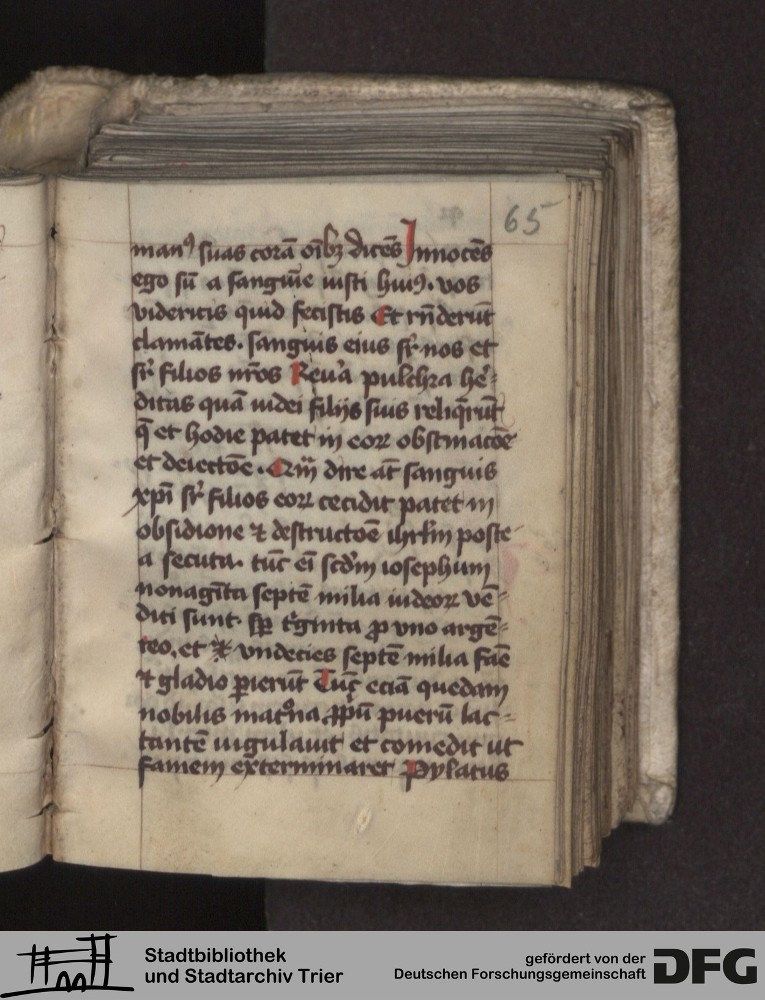 65
manꝰ suas corā oībꝫ dicēs Innocēs
ego sū a sanguīe iusti huiꝰ. vos
videritis quid fecistis Et rn̄derūt
clamātes. sanguis eius sr̄ nos et
sr̄ filios nr̄os Reuͣa pulchra he̅-
ditas quā iudei filijs suis reliq̄rūt
q̄ et hodie patet in eoꝝ obstinacōe
et deiectōe. Qm̄ dire at̄ sanguis
xp̄i sr̄ filios eoꝝ cecidit patet in
obsidione ⁊ destructōe ihrl̄m poste-
a secuta. tūc ei̅ scd̄m iosephum
nonagīta septē milia iudeoꝝ vē-
diti sunt. sꝑ tͥginta ꝓ vno argē-
teo. et vndecies septē milia faē
⁊ gladio ꝑierūt Tūc eciā quedam
nobilis matͦna ꝓpͥū puerū lac-
tantē iugulauit et comedit ut
famem exterminaret Pylatus
Stadtbibliothek
und Stadtarchiv Trier
gefördert von der
Deutschen Forschungsgemeinschaft
DFG